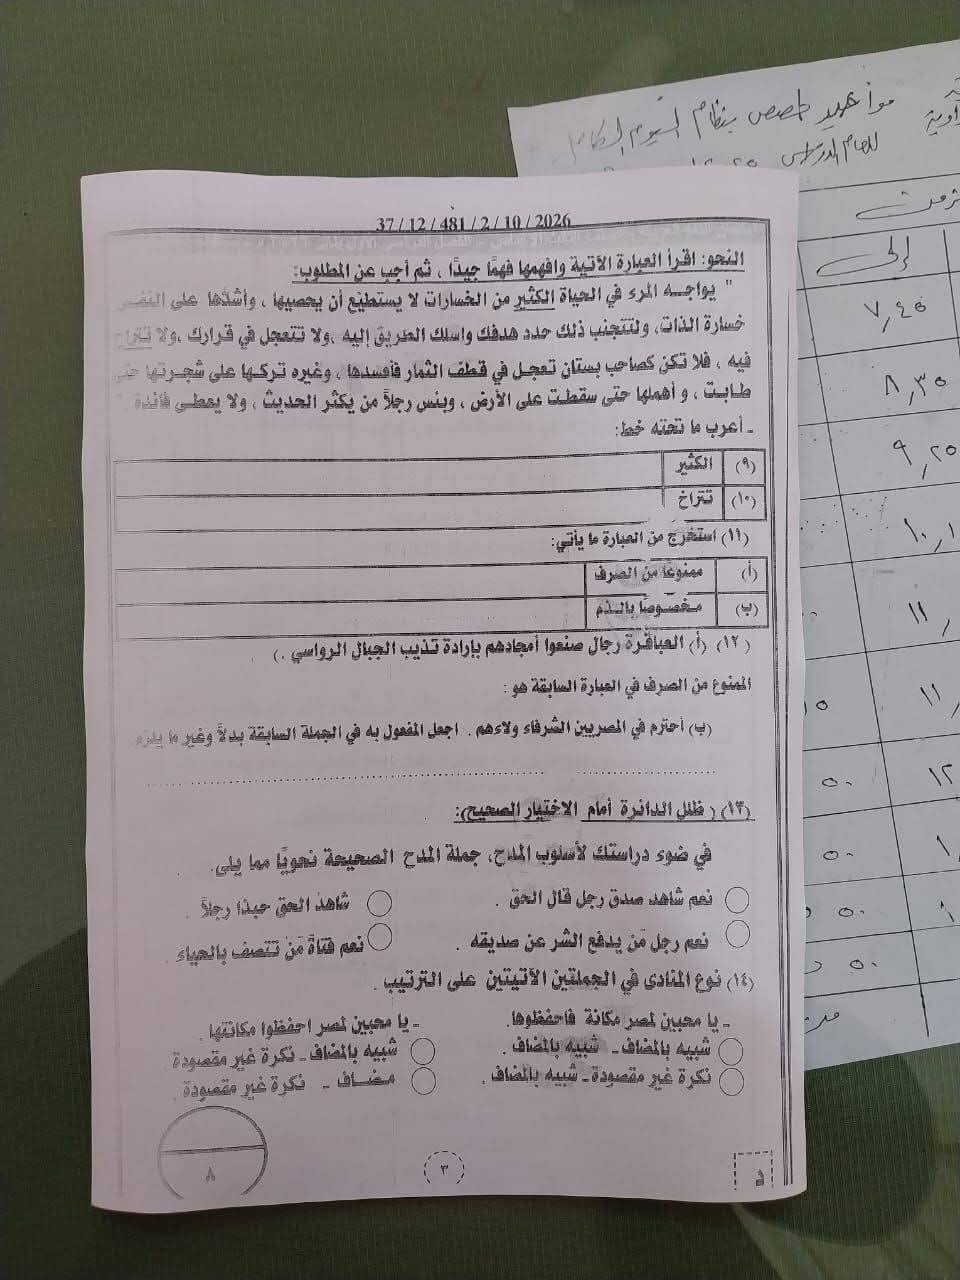 مواعيد حصص بنظام اليوم الكامل
للعام الدراسى
إلى
٧,٤٥
٨,٣٥
٩,٢٥
٥٠
٥٠
٥٠
٥٠
37/12/481/2/10/2026
النحو: اقرأ العبارة الآتية وافهمها فهمًا جيدًا ، ثم أجب عن المطلوب:
" يواجه المرء في الحياة الكثير من الخسارات لا يستطيع أن يحصيها ، وأشدها على النفس
خسارة الذات، ولتتجنب ذلك حدد هدفك واسلك الطريق إليه ،ولا تتعجل في قرارك ،ولا تتراخ
فيه ، فلا تكن كصاحب بستان تعجل في قطف الثمار فأفسدها ، وغيره تركها على شجرتها حتى
طابت ، و أهملها حتى سقطت على الأرض ، وبئس رجلاً من يكثر الحديث ، ولا يعطى فائدة "
ـ أعرب ما تحته خط:
(٩) الكثير
(١٠) تتراخ
(١١) استخرج من العبارة ما يأتي:
(أ) ممنوعًا من الصرف
(ب) مخصوصًا بالذم
(١٢) (أ) العباقرة رجال صنعوا أمجادهم بإرادة تذيب الجبال الرواسي .)
الممنوع من الصرف في العبارة السابقة هو :
(ب) أحترم في المصريين الشرفاء ولاءهم . اجعل المفعول به في الجملة السابقة بدلاً وغير ما يلزم
(١٣) ( ظلل الدائرة أمام الاختيار الصحيح):
في ضوء دراستك لأسلوب المدح، جملة المدح الصحيحة نحويًا مما يلى.
نعم شاهد صدق رجل قال الحق . شاهدُ الحق حبذا رجلاً .
نعم رجل مَن يدفع الشر عن صديقه . نعم فتاةً مَن تتصف بالحياء .
(١٤) نوع المنادى في الجملتين الآتيتين على الترتيب .
ـ يا محبين لمصر مكانة فاحفظوها. ـ يا محبين لمصر احفظوا مكانتها.
شبيه بالمضاف ـ شبيه بالمضاف. شبيه بالمضاف ـ نكرة غير مقصودة
نكرة غير مقصودة ـ شبيه بالمضاف . مضاف ـ نكرة غير مقصودة .
٨
٣